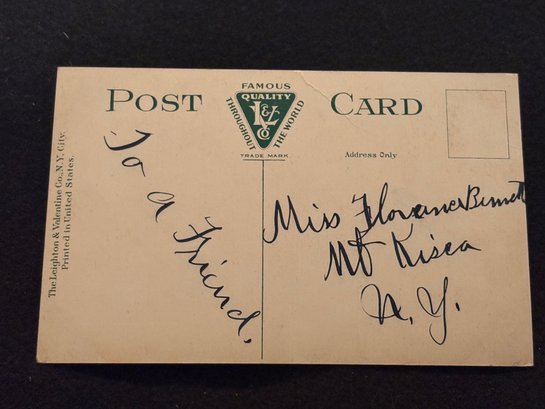 The Leighton & Valentine Co., N.Y. City.
Printed in United States.
POST CARD
FAMOUS
QUALITY
THROUGHOUT THE WORLD
L & V Co
TRADE MARK
Address Only
To a Friend.
Miss Florence Bennett
Mt Kisco
N. Y.